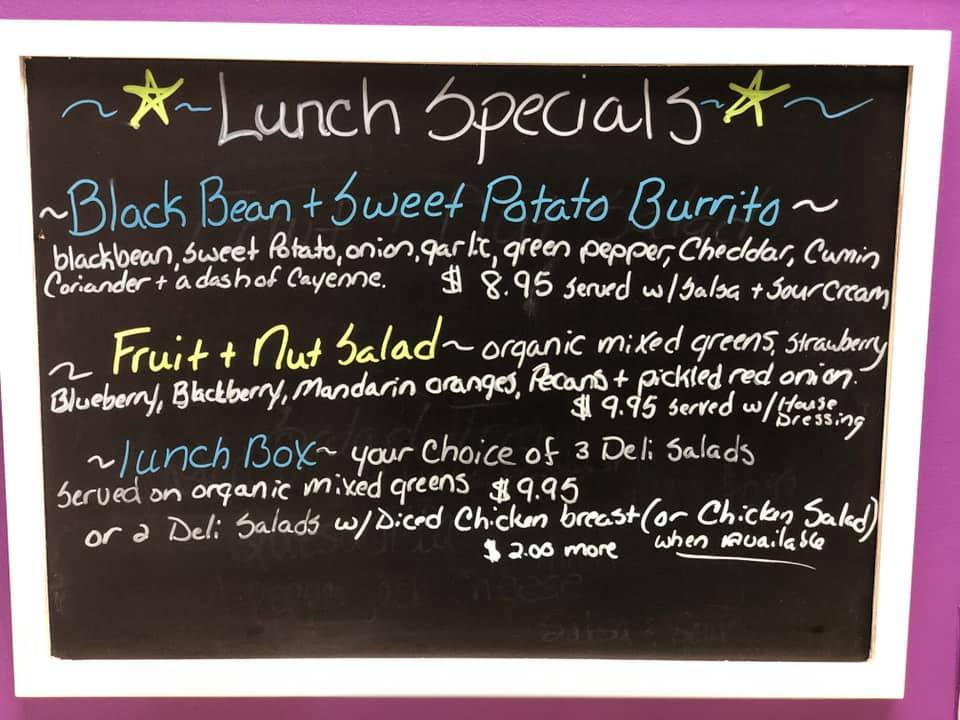 ~☆~ Lunch Specials ~☆~
~ Black Bean + Sweet Potato Burrito ~
blackbean, sweet Potato, onion, garlic, green pepper, Cheddar, Cumin
Coriander + a dash of Cayenne. $ 8.95 served w/ Salsa + Sour Cream
~ Fruit + Nut Salad ~ organic mixed greens, strawberry
Blueberry, Blackberry, Mandarin oranges, Pecans + pickled red onion.
$ 9.95 served w/ House Dressing
~ lunch Box ~ your Choice of 3 Deli Salads
Served on organic mixed greens $ 9.95
or 2 Deli Salads w/ Diced Chicken breast (or Chicken Salad)
$ 2.00 more when available